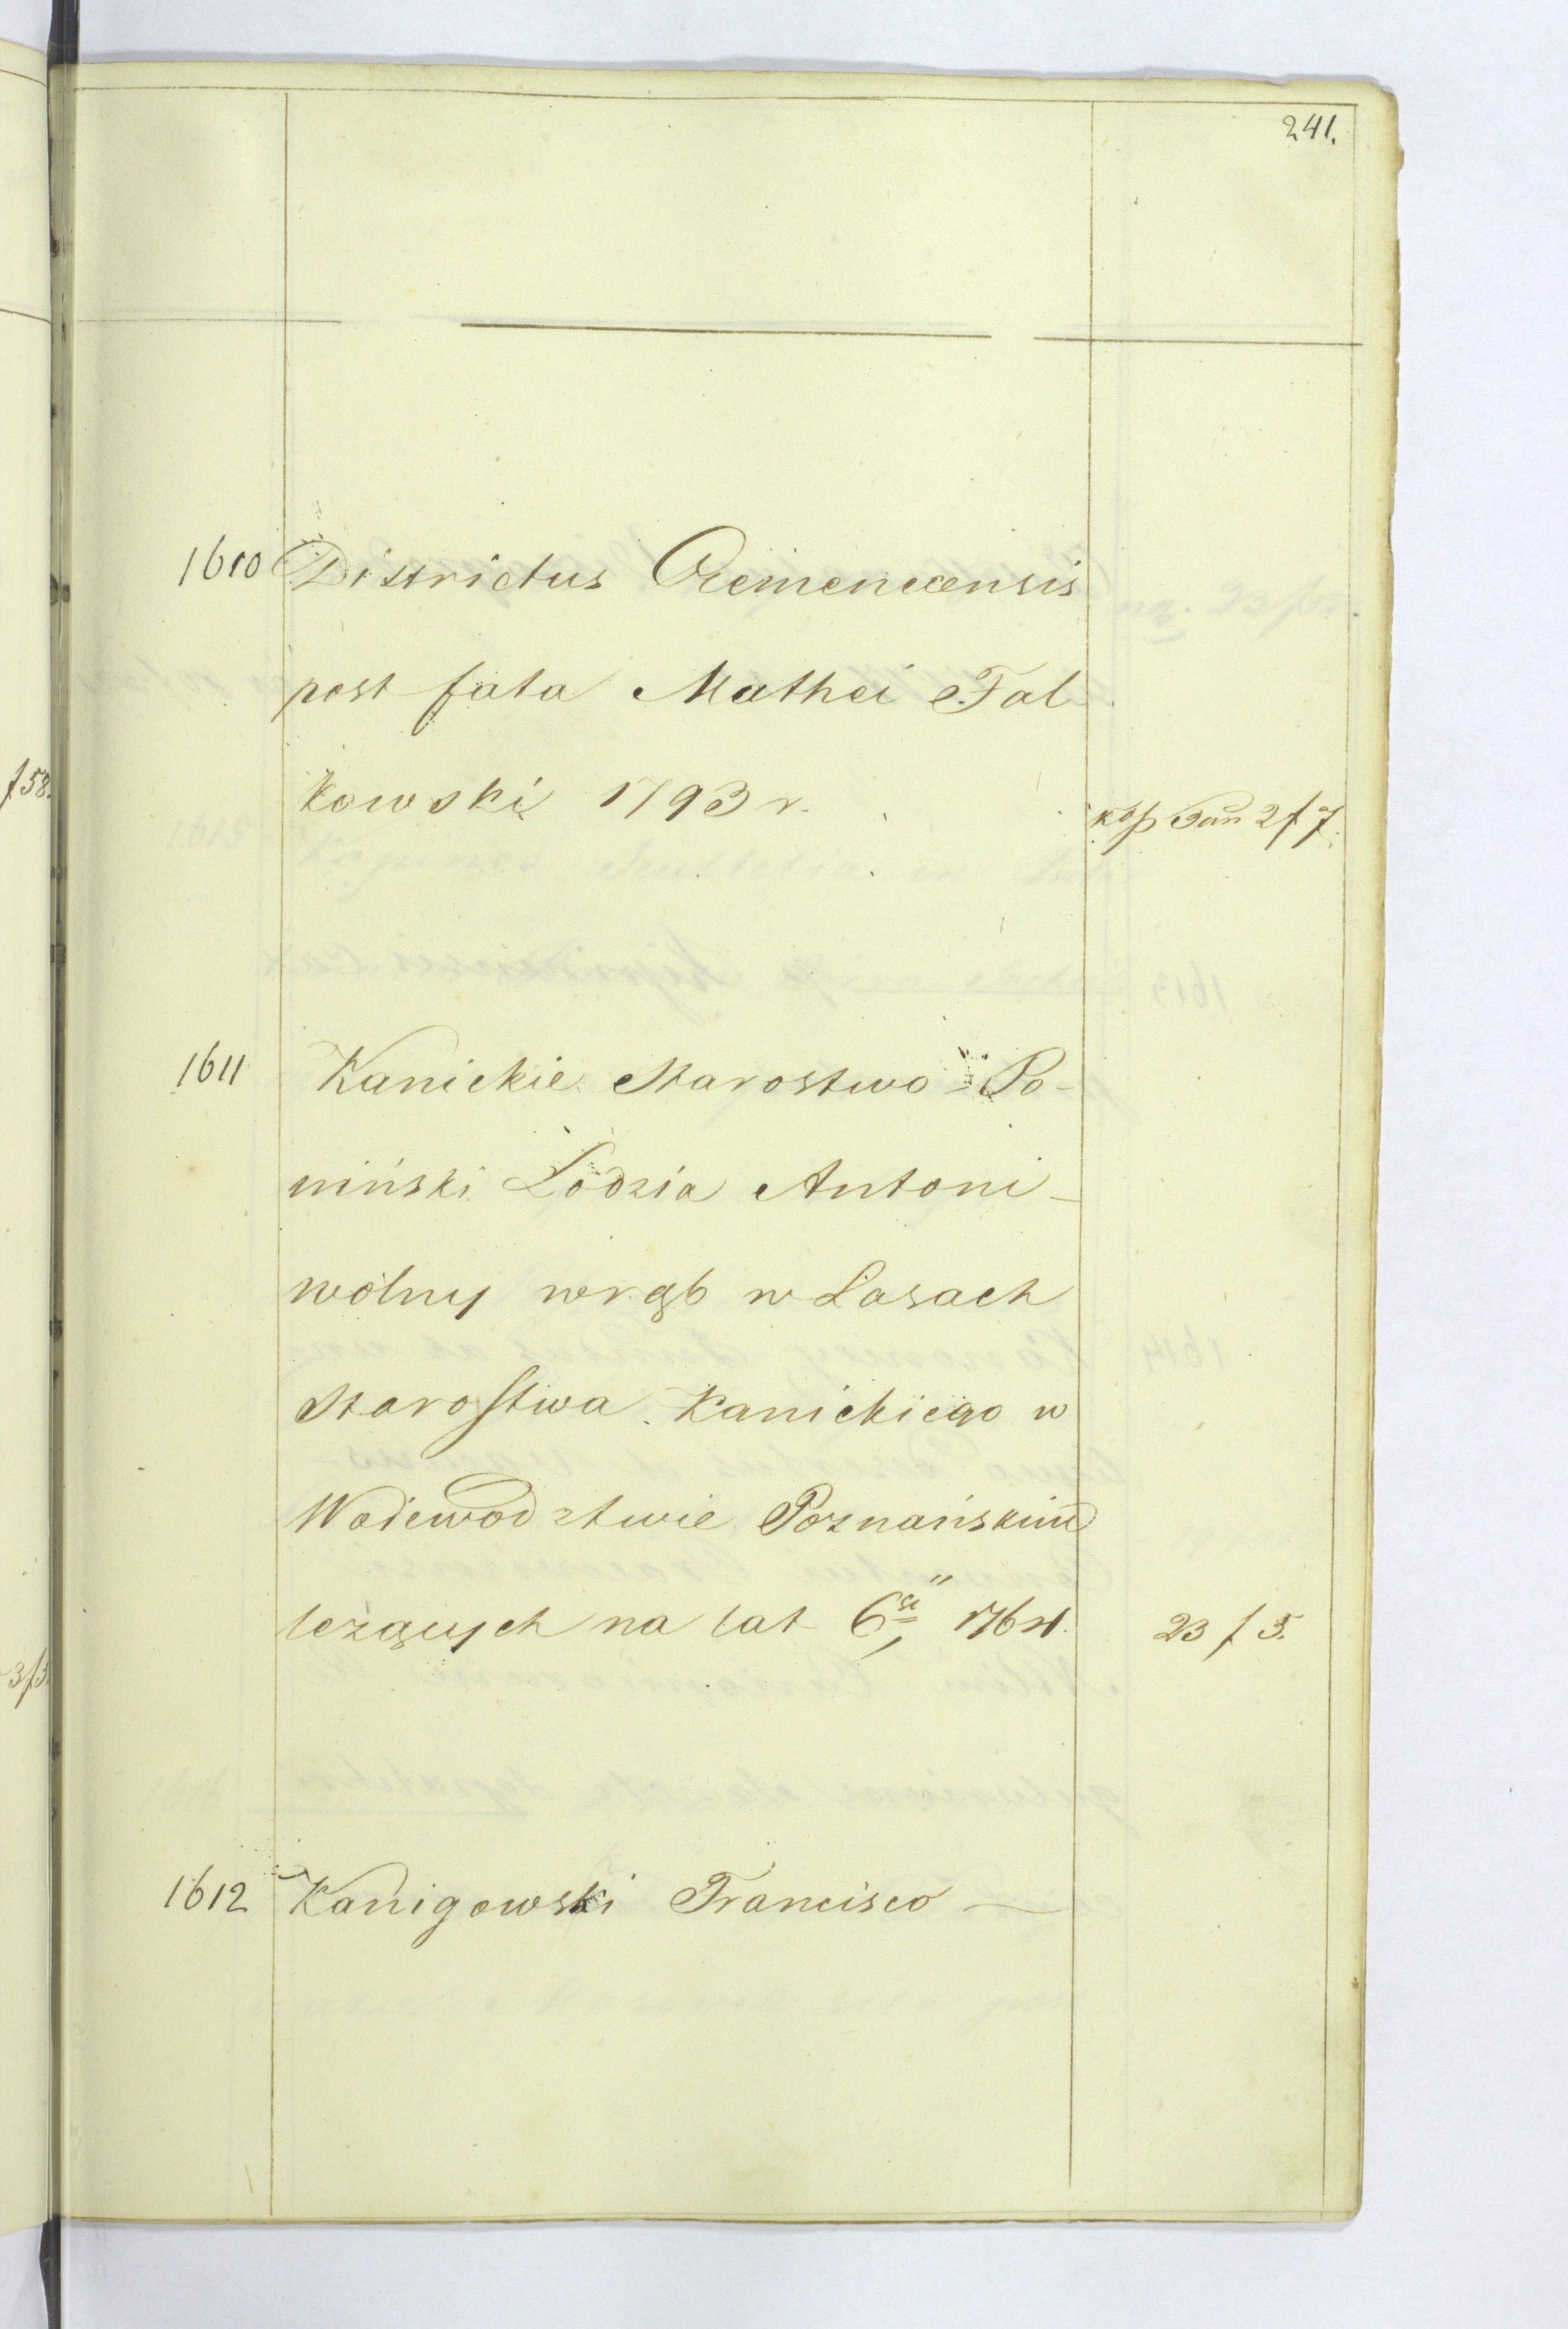 241.
1610 Districtus Cremenecensis
post fata Mathei Fal
kowski 1793 r. ksp Pań 2 f 7.
f 58.
1611 Kanickie Starostwo Po-
niński Łodzia Antoni
wolny wrąb w Lasach
Starostwa Kanickiego w
Wodewodztwie Poznańskim
leżących na lat 6ci 1764. 23 f 5.
3 f 3.
1612 Kanigowski Francisco